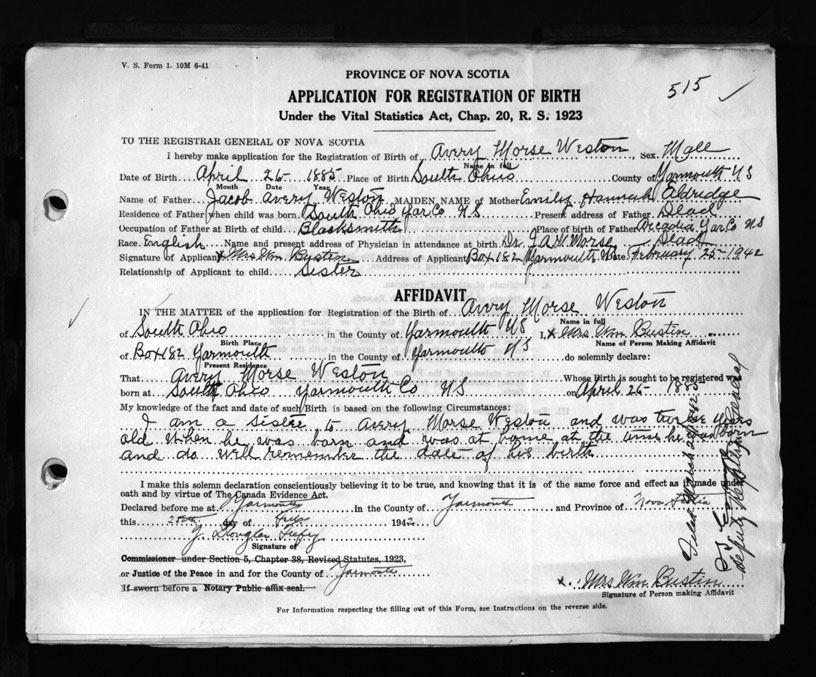 V. S. Form 1. 10M 6-41
515 ✓
PROVINCE OF NOVA SCOTIA
APPLICATION FOR REGISTRATION OF BIRTH
Under the Vital Statistics Act, Chap. 20, R. S. 1923
TO THE REGISTRAR GENERAL OF NOVA SCOTIA
I hereby make application for the Registration of Birth of Avery Morse Weston, Sex Male
Name in full
Date of Birth April 26 - 1885 Place of Birth South Ohio County of Yarmouth NS
Month Date Year
Name of Father Jacob Avery Weston MAIDEN NAME of Mother Emily Hannah Aldridge
Residence of Father when child was born South Ohio Yar Co NS Present address of Father Dead
Occupation of Father at Birth of child Blacksmith Place of birth of Father Arcadia Yar Co NS
Race English Name and present address of Physician in attendance at birth Dr. J.A. Morse Dead
Signature of Applicant x Mrs Wm Bustin Address of Applicant Box 182 Yarmouth NS Date February 25 - 1942
Relationship of Applicant to child Sister
AFFIDAVIT
IN THE MATTER of the application for Registration of the Birth of Avery Morse Weston
Name in full
of South Ohio in the County of Yarmouth NS I, x Mrs Wm Bustin
Birth Place Name of Person Making Affidavit
of Box 182 Yarmouth in the County of Yarmouth NS do solemnly declare:
Present Residence
That Avery Morse Weston Whose Birth is sought to be registered was
born at South Ohio Yarmouth Co NS on April 26 - 1885
My knowledge of the fact and date of such Birth is based on the following Circumstances:
I am a sister to Avery Morse Weston and was twelve years
old when he was born and was at home at the time he was born
and do well remember the date of his birth
I make this solemn declaration conscientiously believing it to be true, and knowing that it is of the same force and effect as if made under
oath and by virtue of The Canada Evidence Act.
Declared before me at Yarmouth in the County of Yarmouth and Province of Nova Scotia
this 25th day of Feby 1942
J. Douglas
Signature of
Commissioner under Section 5, Chapter 38, Revised Statutes, 1923,
or Justice of the Peace in and for the County of Yarmouth
If sworn before a Notary Public affix seal.
x Mrs Wm Bustin
Signature of Person making Affidavit
For Information respecting the filling out of this Form, see Instructions on the reverse side.
Filed March 1942
Deputy General